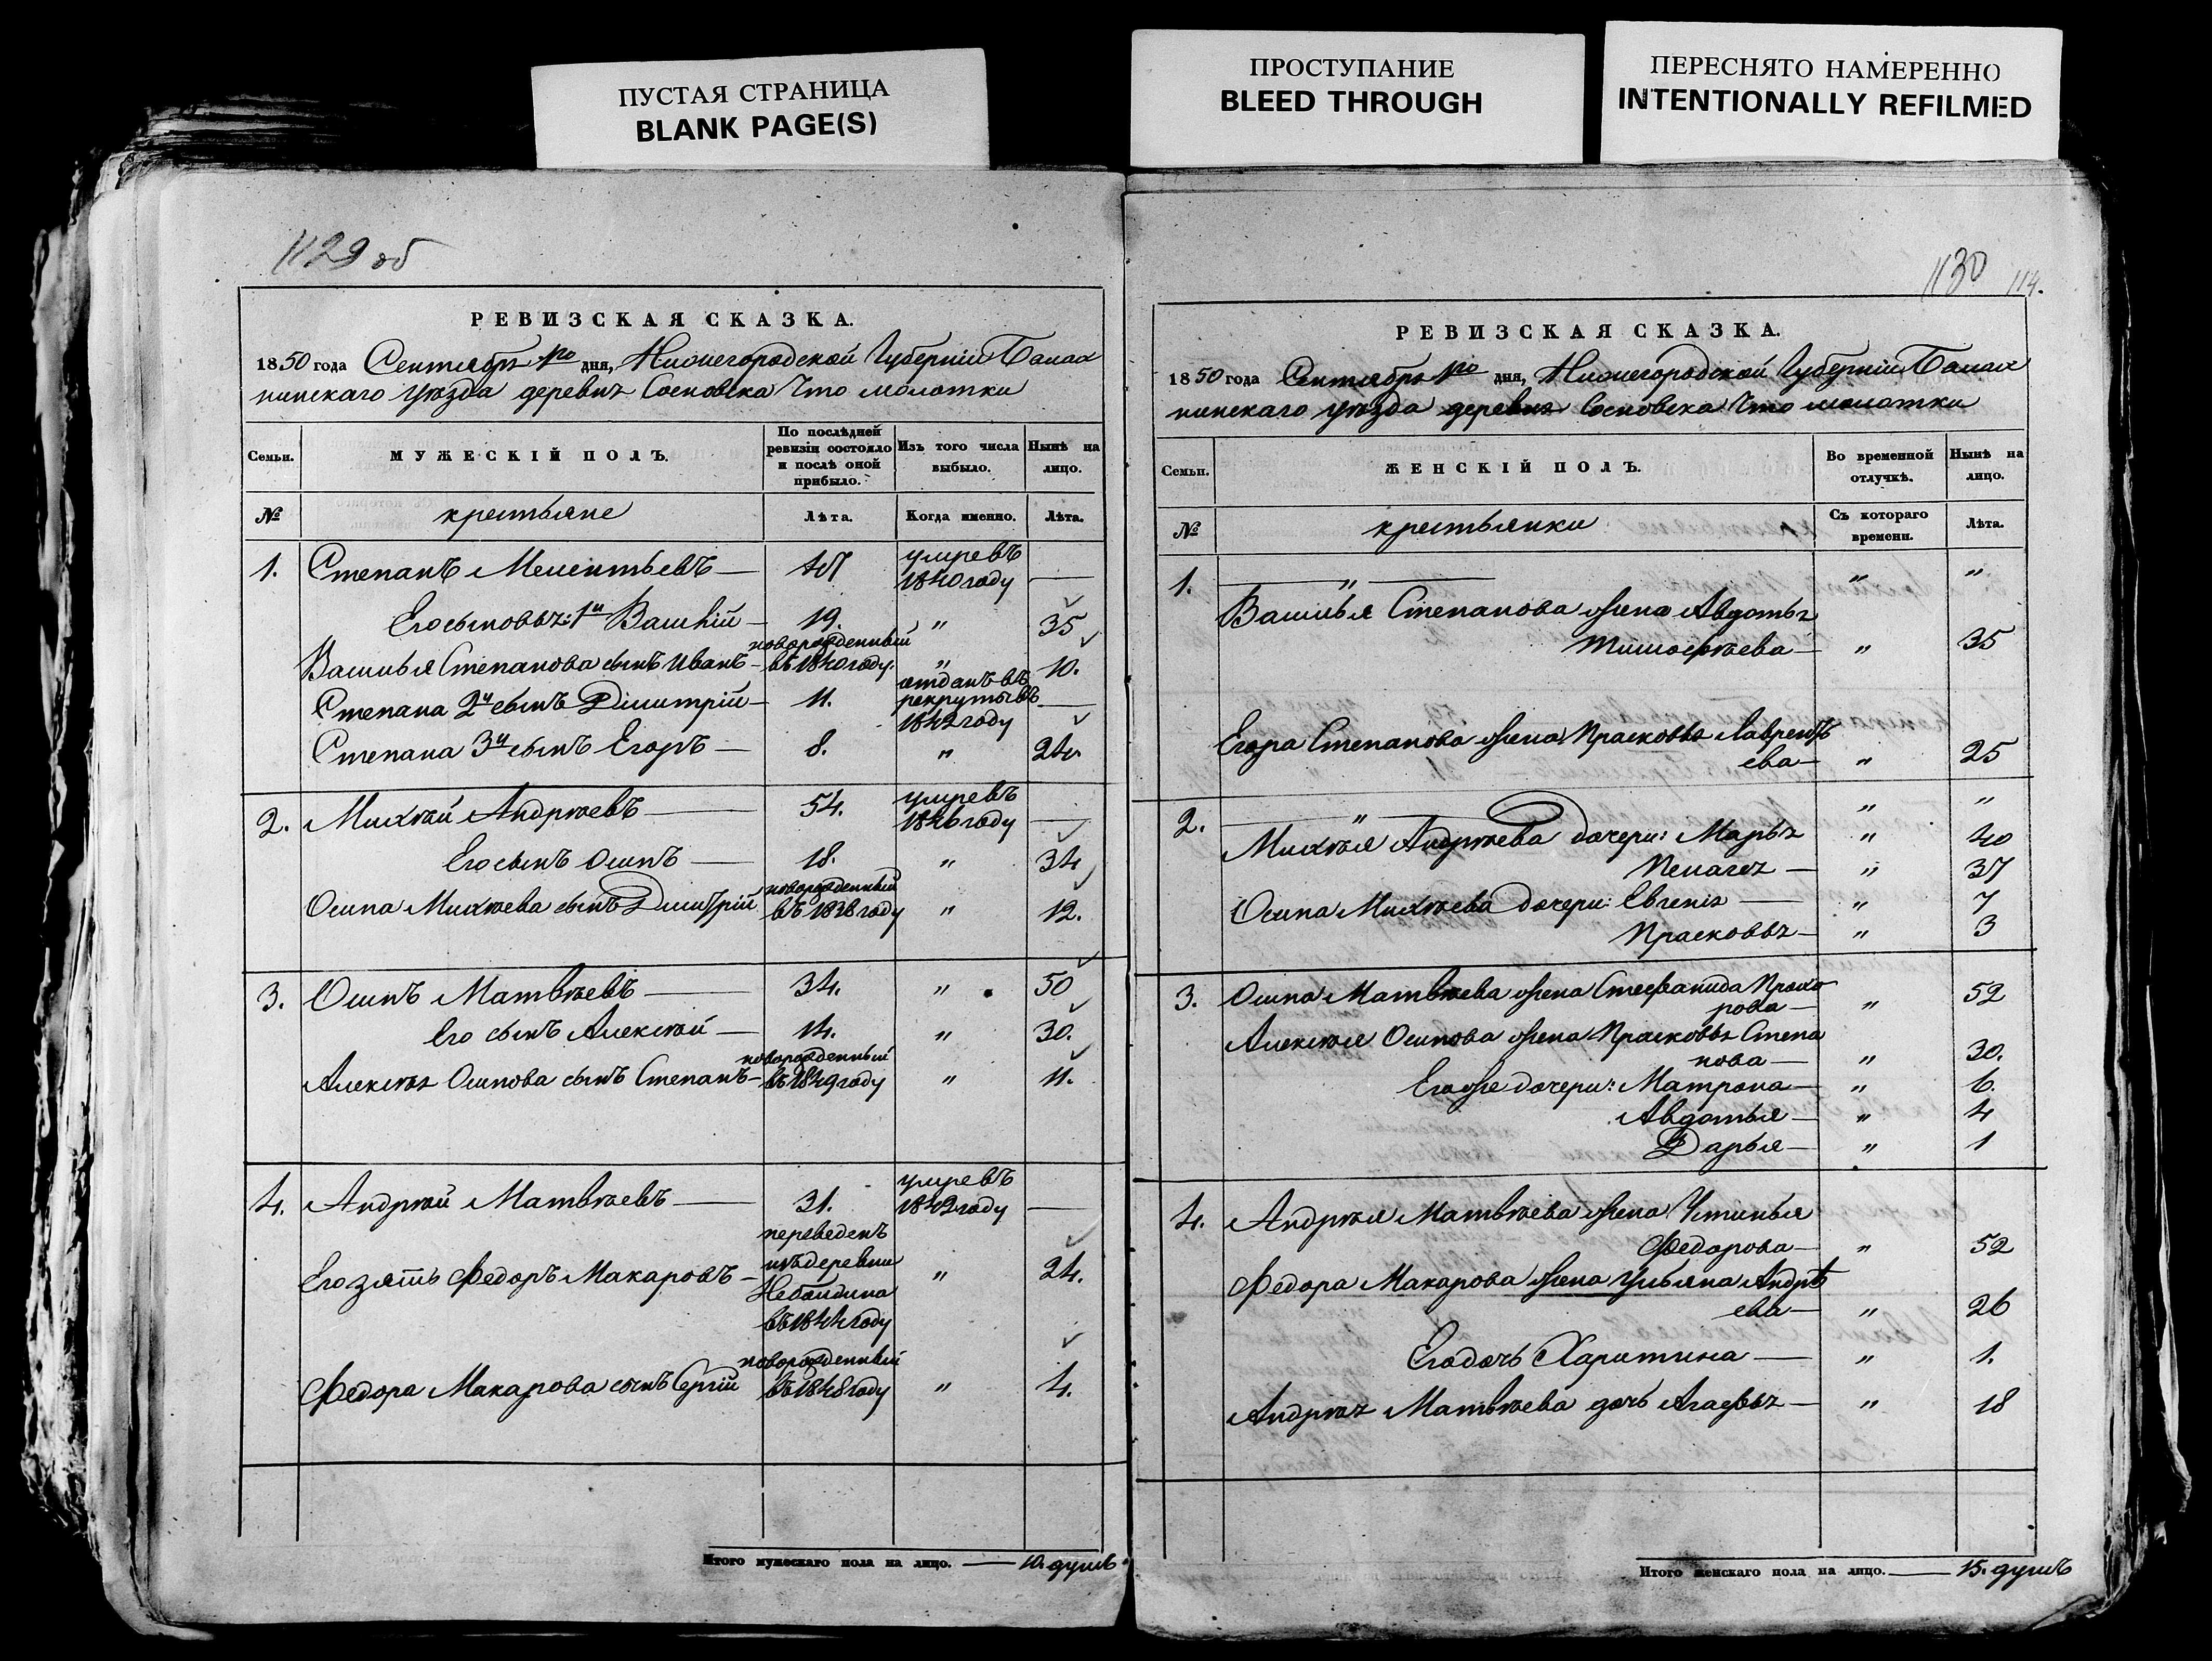 ПУСТАЯ СТРАНИЦА
BLANK PAGE(S)
ПРОСТУПАНИЕ
BLEED THROUGH
ПЕРЕСНЯТО НАМЕРЕННО
INTENTIONALLY REFILMED
1129 об
РЕВИЗСКАЯ СКАЗКА.
1850 года Сентября 1го дня, Нижегородской Губерніи Балах
нинскаго уѣзда деревнѣ Сосновска что молотки
Семьи. МУЖЕСКІЙ ПОЛЪ. По послѣдней ревизіи состояло и послѣ оной прибыло. Изъ того числа выбыло. Нынѣ на лицо.
№ крестьяне Лѣта. Когда именно. Лѣта.
1. Степанъ Мелентьевъ — 47 умревъ 1840 году —
Его сыновья: 1й Василій — 19. " 35
Василья Степанова сынъ Иванъ — новорожденный въ 1840 году. " 10.
Степана 2й сынъ Дімитрій — 11. отданъ въ рекруты въ 1842 году —
Степана 3й сынъ Егоръ — 8. " 24.
2. Михѣй Андрѣевъ — 54. умревъ 1846 году —
Его сынъ Осипъ — 18. " 34
Осипа Михѣева сынъ Дмитрій новорожденный въ 1838 году " 12.
3. Осипъ Матвѣевъ — 34. " 50
Его сынъ Алексѣй — 14. " 30.
Алексѣя Осипова сынъ Степанъ — новорожденный въ 1849 году " 11.
4. Андрѣй Матвѣевъ — 31. умревъ 1842 году —
Его зять Федоръ Макаровъ — переведенъ изъ деревни въ 1844 году " 24.
Федора Макарова сынъ Сергій новорожденный въ 1848 году " 4.
Итого мужескаго пола на лицо. — 10. душъ
1130 114.
РЕВИЗСКАЯ СКАЗКА.
1850 года Сентября 1го дня, Нижегородской Губерніи Балах
нинскаго уѣзда деревня Сосновска что молотки
Семьи. ЖЕНСКІЙ ПОЛЪ. Во временной отлучкѣ. Нынѣ на лицо.
№ крестьянки Съ котораго времени. Лѣта.
1. — " — " "
Василья Степанова жена Авдотья
Тимофѣева — " 35
Егора Степанова жена Прасковья Лаврентъ
ева — " 25
2. — " — " "
Михѣя Андрѣева дочери: Марья " 40
Пелагея — " 37
Осипа Михѣева дочери: Евгенія — " 7
Прасковья — " 3
3. Осипа Матвѣева жена Стефанида Прохо
рова — " 52
Алексѣя Осипова жена Прасковья Степа
нова — " 30.
Его же дочери: Матрона — " 6.
Авдотья — " 4
Дарья — " 1
4. Андрѣя Матвѣева жена Устинья
Федорова — " 52
Федора Макарова жена Ульяна Андрѣ
ева — " 26
Его дочь Харитина — " 1.
Андрѣя Матвѣева дочь Агафья — " 18
Итого женскаго пола на лицо. — 15. душъ